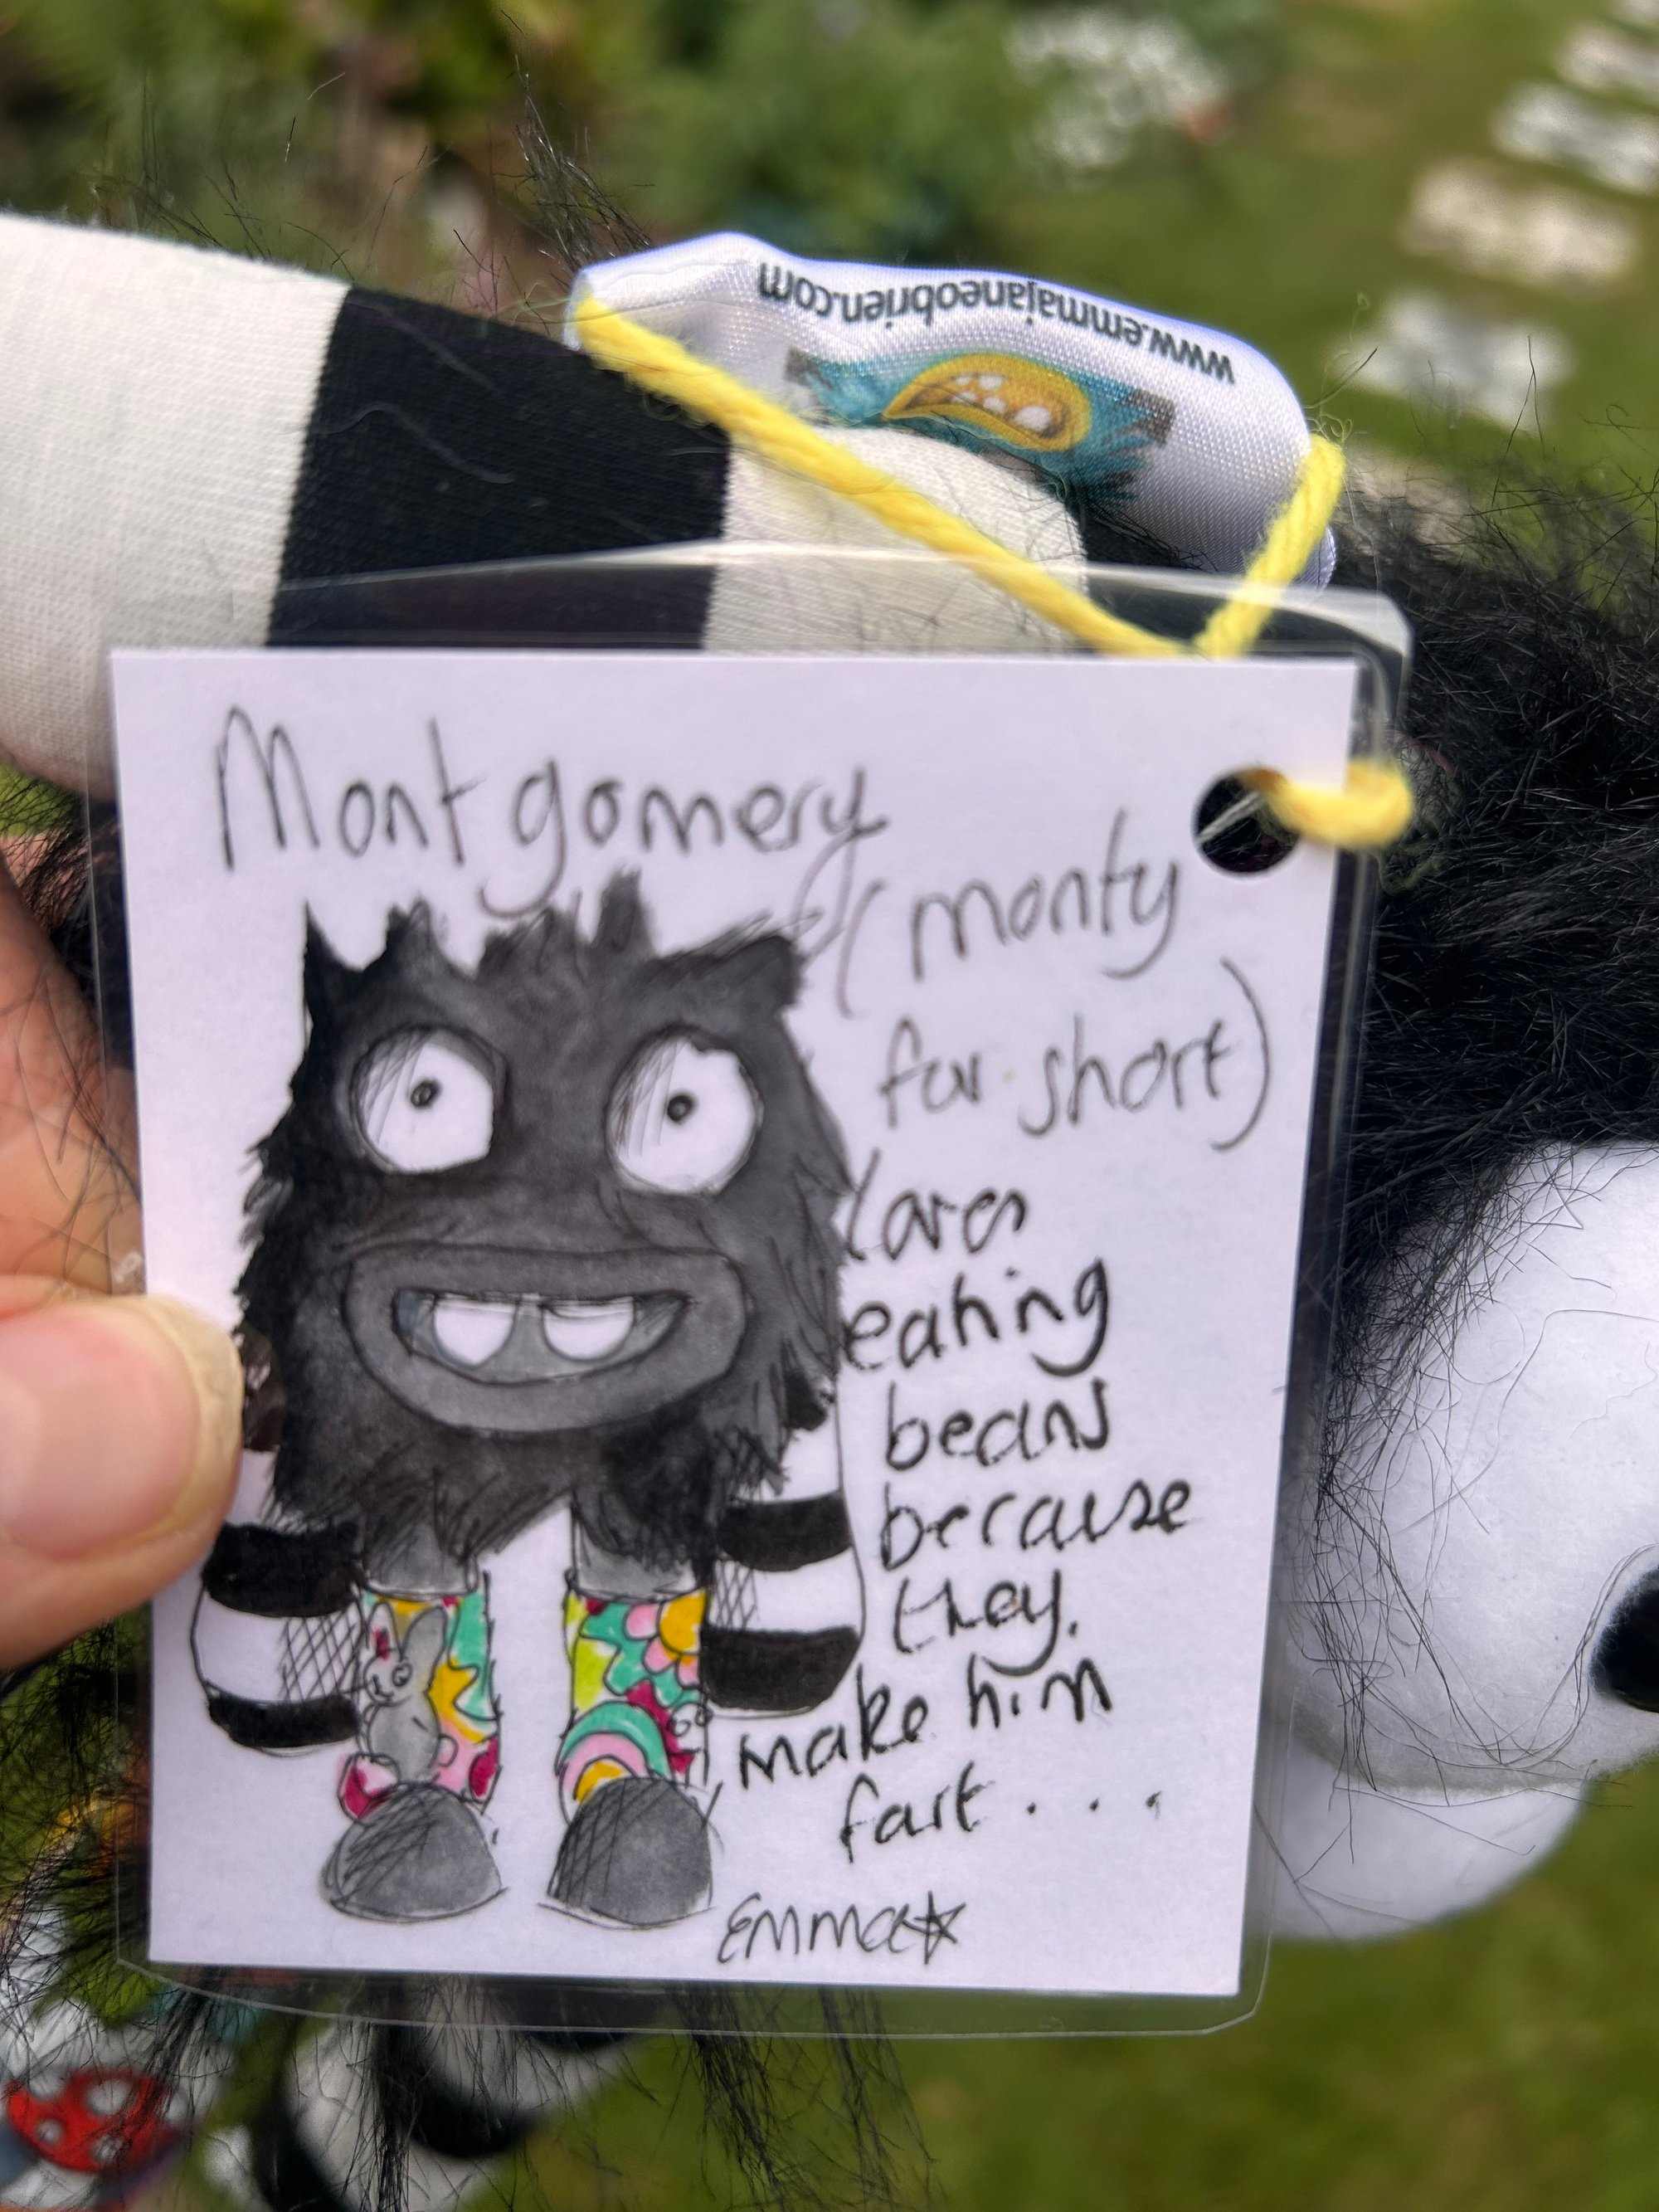 www.emmajaneobrien.com
Montgomery
(monty
for short)
loves
eating
beans
because
they
make him
fart...
Emma